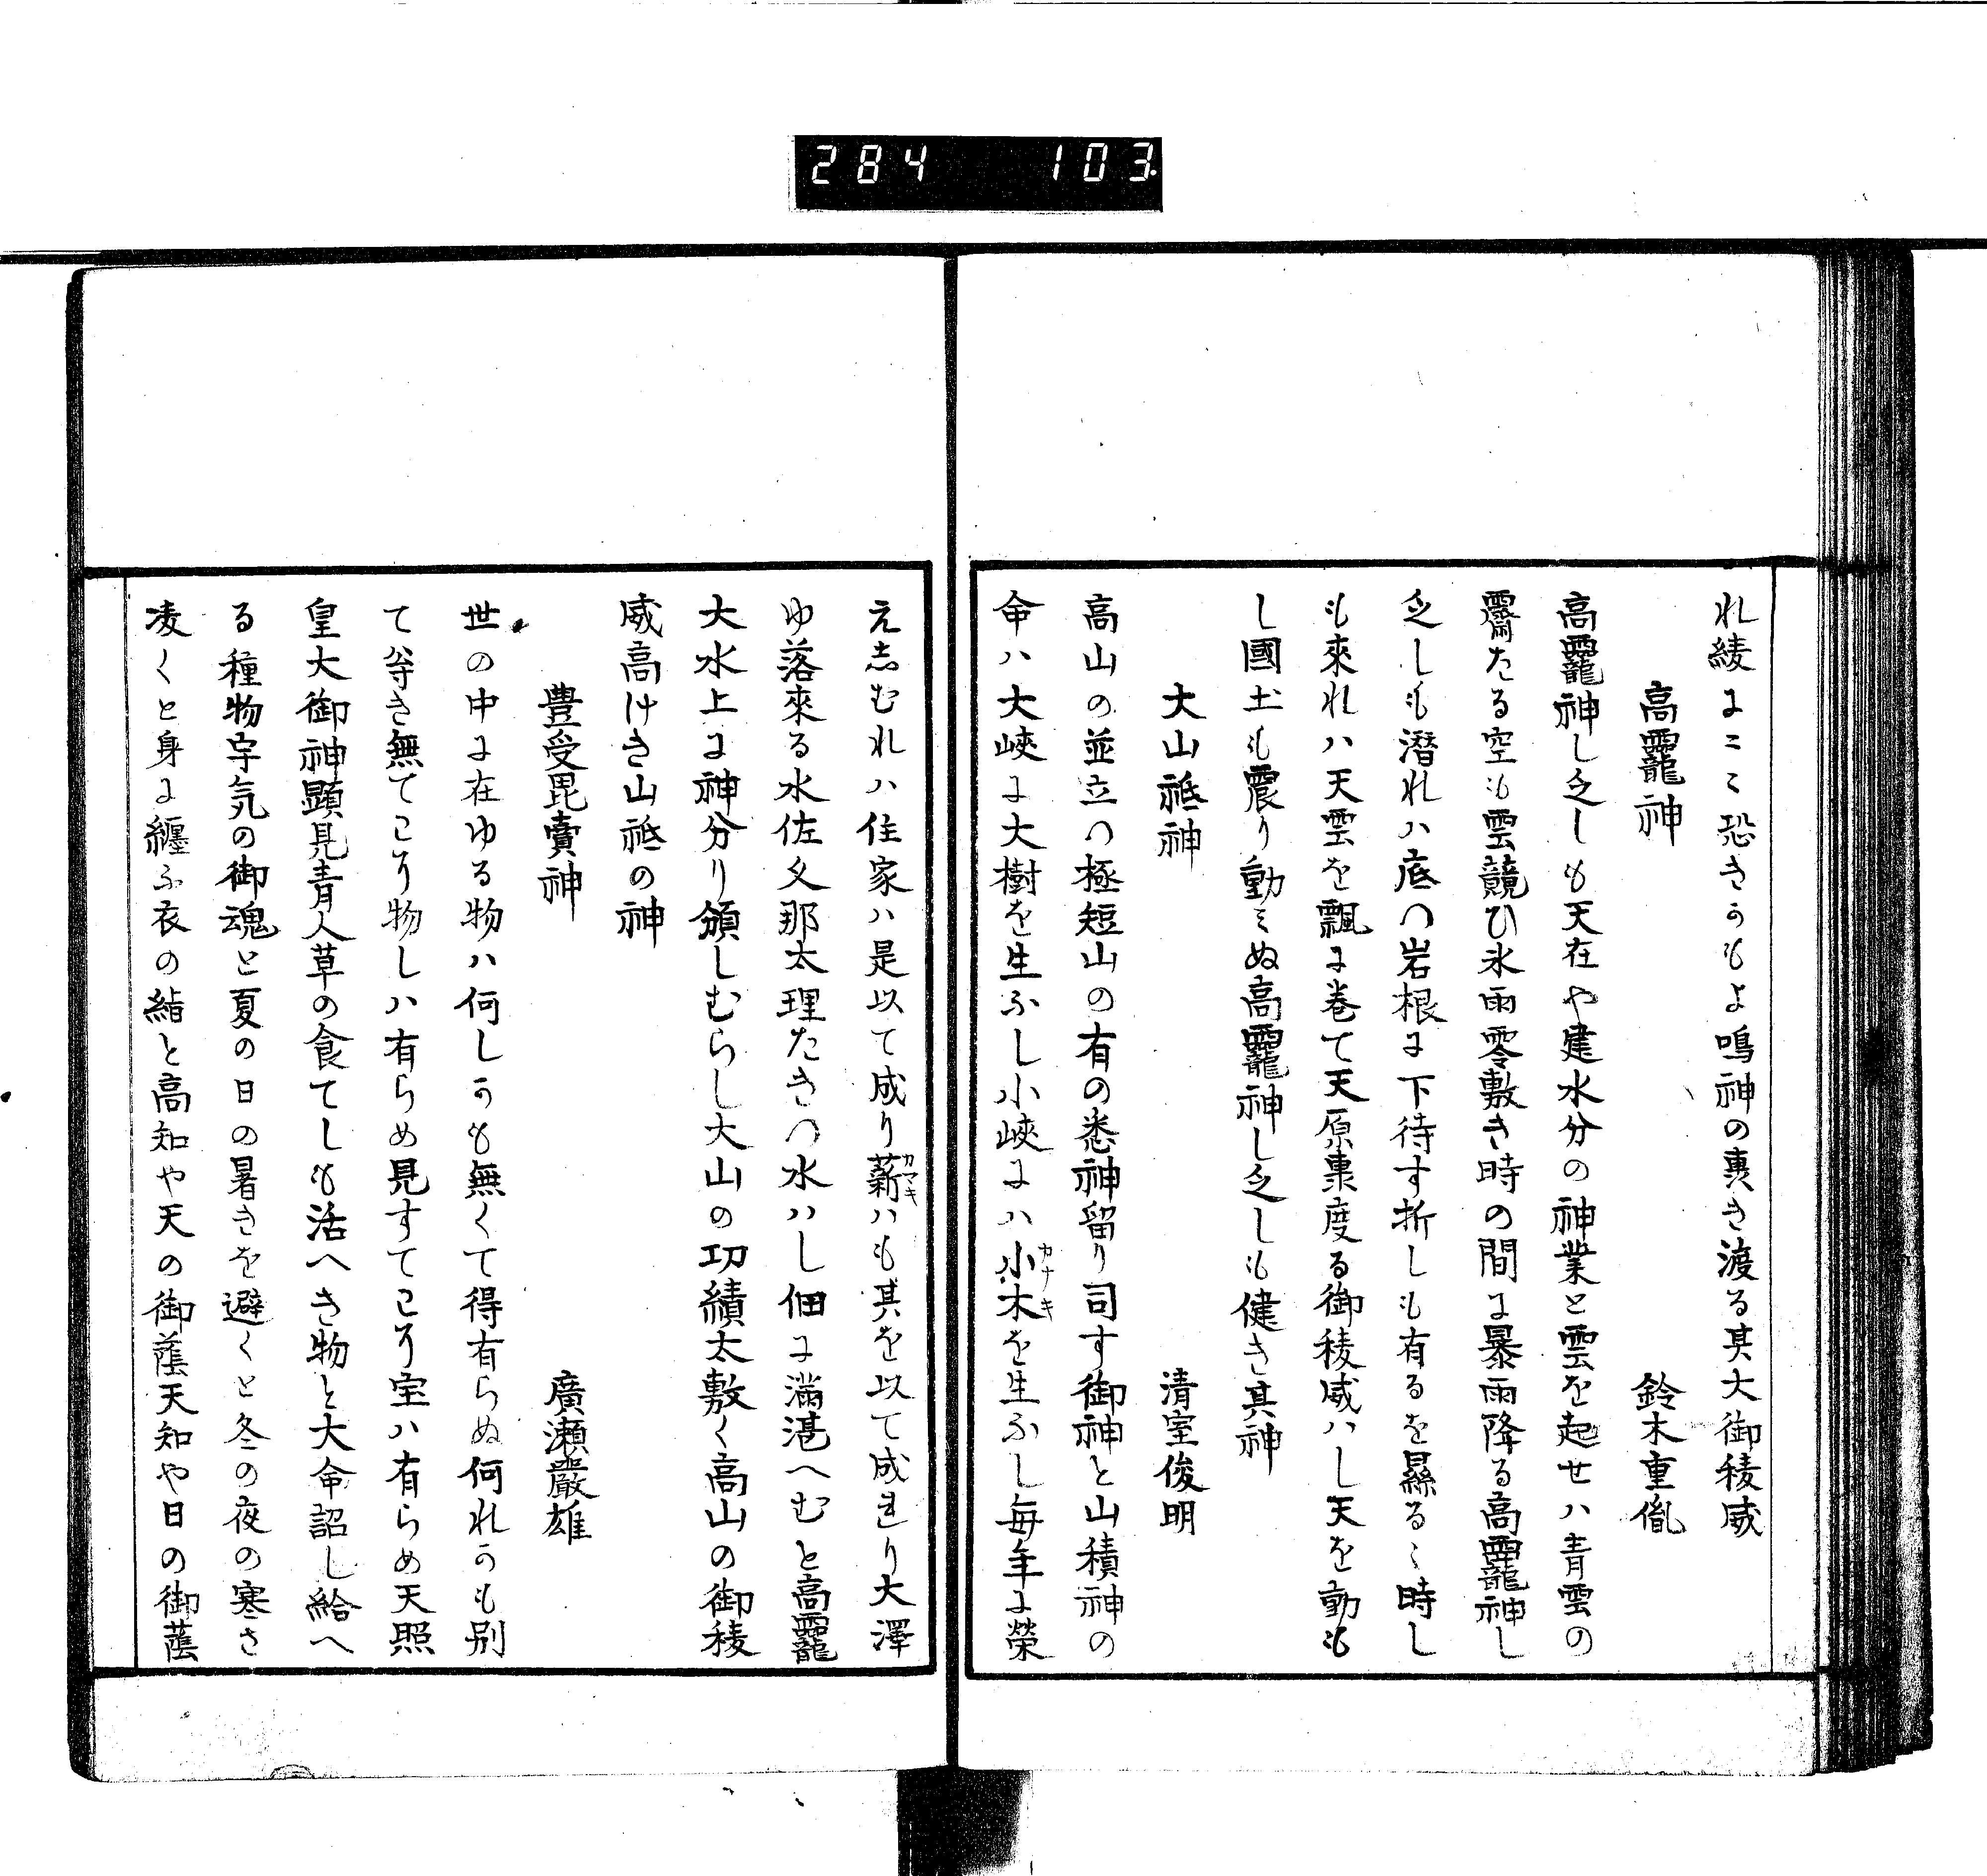 284 103
れ綾にこゝ恐きかもよ鳴神の轟き渡る其大御稜威
高龗神 鈴木重胤
高龗神し乏しも天在や建水分の神業と雲を起せハ青雲の
霽たる空も雲競ひ氷雨零敷き時の間に暴雨降る高龗神し
乏しも潜れハ底つ岩根に下待す折しも有るを縣るゝ時し
も來れハ天雲を飄に巻て天原度る御稜威ハし天を動も
し國土も震り動ミぬ高龗神し乏しも健き其神
大山祇神 清室俊明
高山の並立つ極短山の有の悉神留り司す御神と山積神の
命ハ大峽に大樹を生ふし小峽にハ小木を生ふし毎年に榮
カナキ
えしむれハ住家ハ是以て成り薪ハも其を以て成れり大澤
カマキ
ゆ落來る水佐久那太理たきつ水ハし佃に満湛へむと高龗
大水上に神分り頒しむらし大山の功績太敷く高山の御稜
威高けき山祇の神
豊受毘賣神 廣瀬嚴雄
世の中に在ゆる物ハ何しかも無くて得有らぬ何れかも別
て等き無てこそ物しハ有らめ見すてこそ宝ハ有らめ天照
皇大御神顕見青人草の食てしも活へき物と大命詔し給へ
る種物宇気の御魂と夏の日の暑きを避くと冬の夜の寒さ
凌くと身に纏ふ衣の と高知や天の御蔭天知や日の御蔭